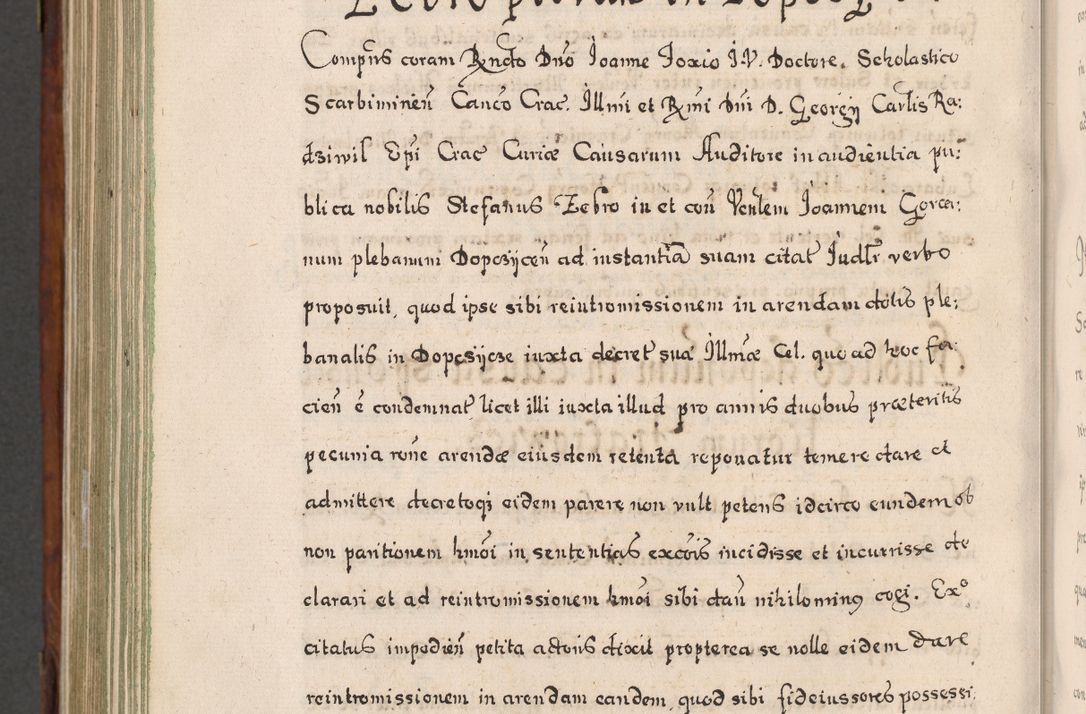 Comp̃ris coram Rñdo Dno Joanne Foxio I.V. Doctore. Scholastico
Scarbimirień Canco Crac. Illmi et Rmi Dni D. Georgij Carlis Ra:
dziwil Epi Crac Curiæ Causarum Auditore in audientia pu:
blica nobilis Stefanus Zebro in et coñ Venlem Joannem Gorca:
num plebanum Dopczycen̄ ad instantiā suam citat̄ Judlr̄ verbo
proposuit, quod ipse sibi reintromissionem in arendam dotis ple:
banalis in Dopczycze iuxta decret̄ suæ Illmæ Cel. quo ad hoc fa:
cień ē condemnat̄ licet illi iuxta illud pro annis duobus præteritis
pecunia rone arendæ eiusdem retenta reponatur temere dare et
admittere decretoq; eidem parere non vult petens idcirco eundem ob
non paritionem hmōi in sententias excōis incidisse et incurrisse de
clarari et ad reintromissionem hmōi sibi dań nihilominus cogi. Exº
citatus impedień petita actoris dixit propterea se nolle eidem dare
reintromissionem in arendam eandem, quod sibi fideiussores possessi: